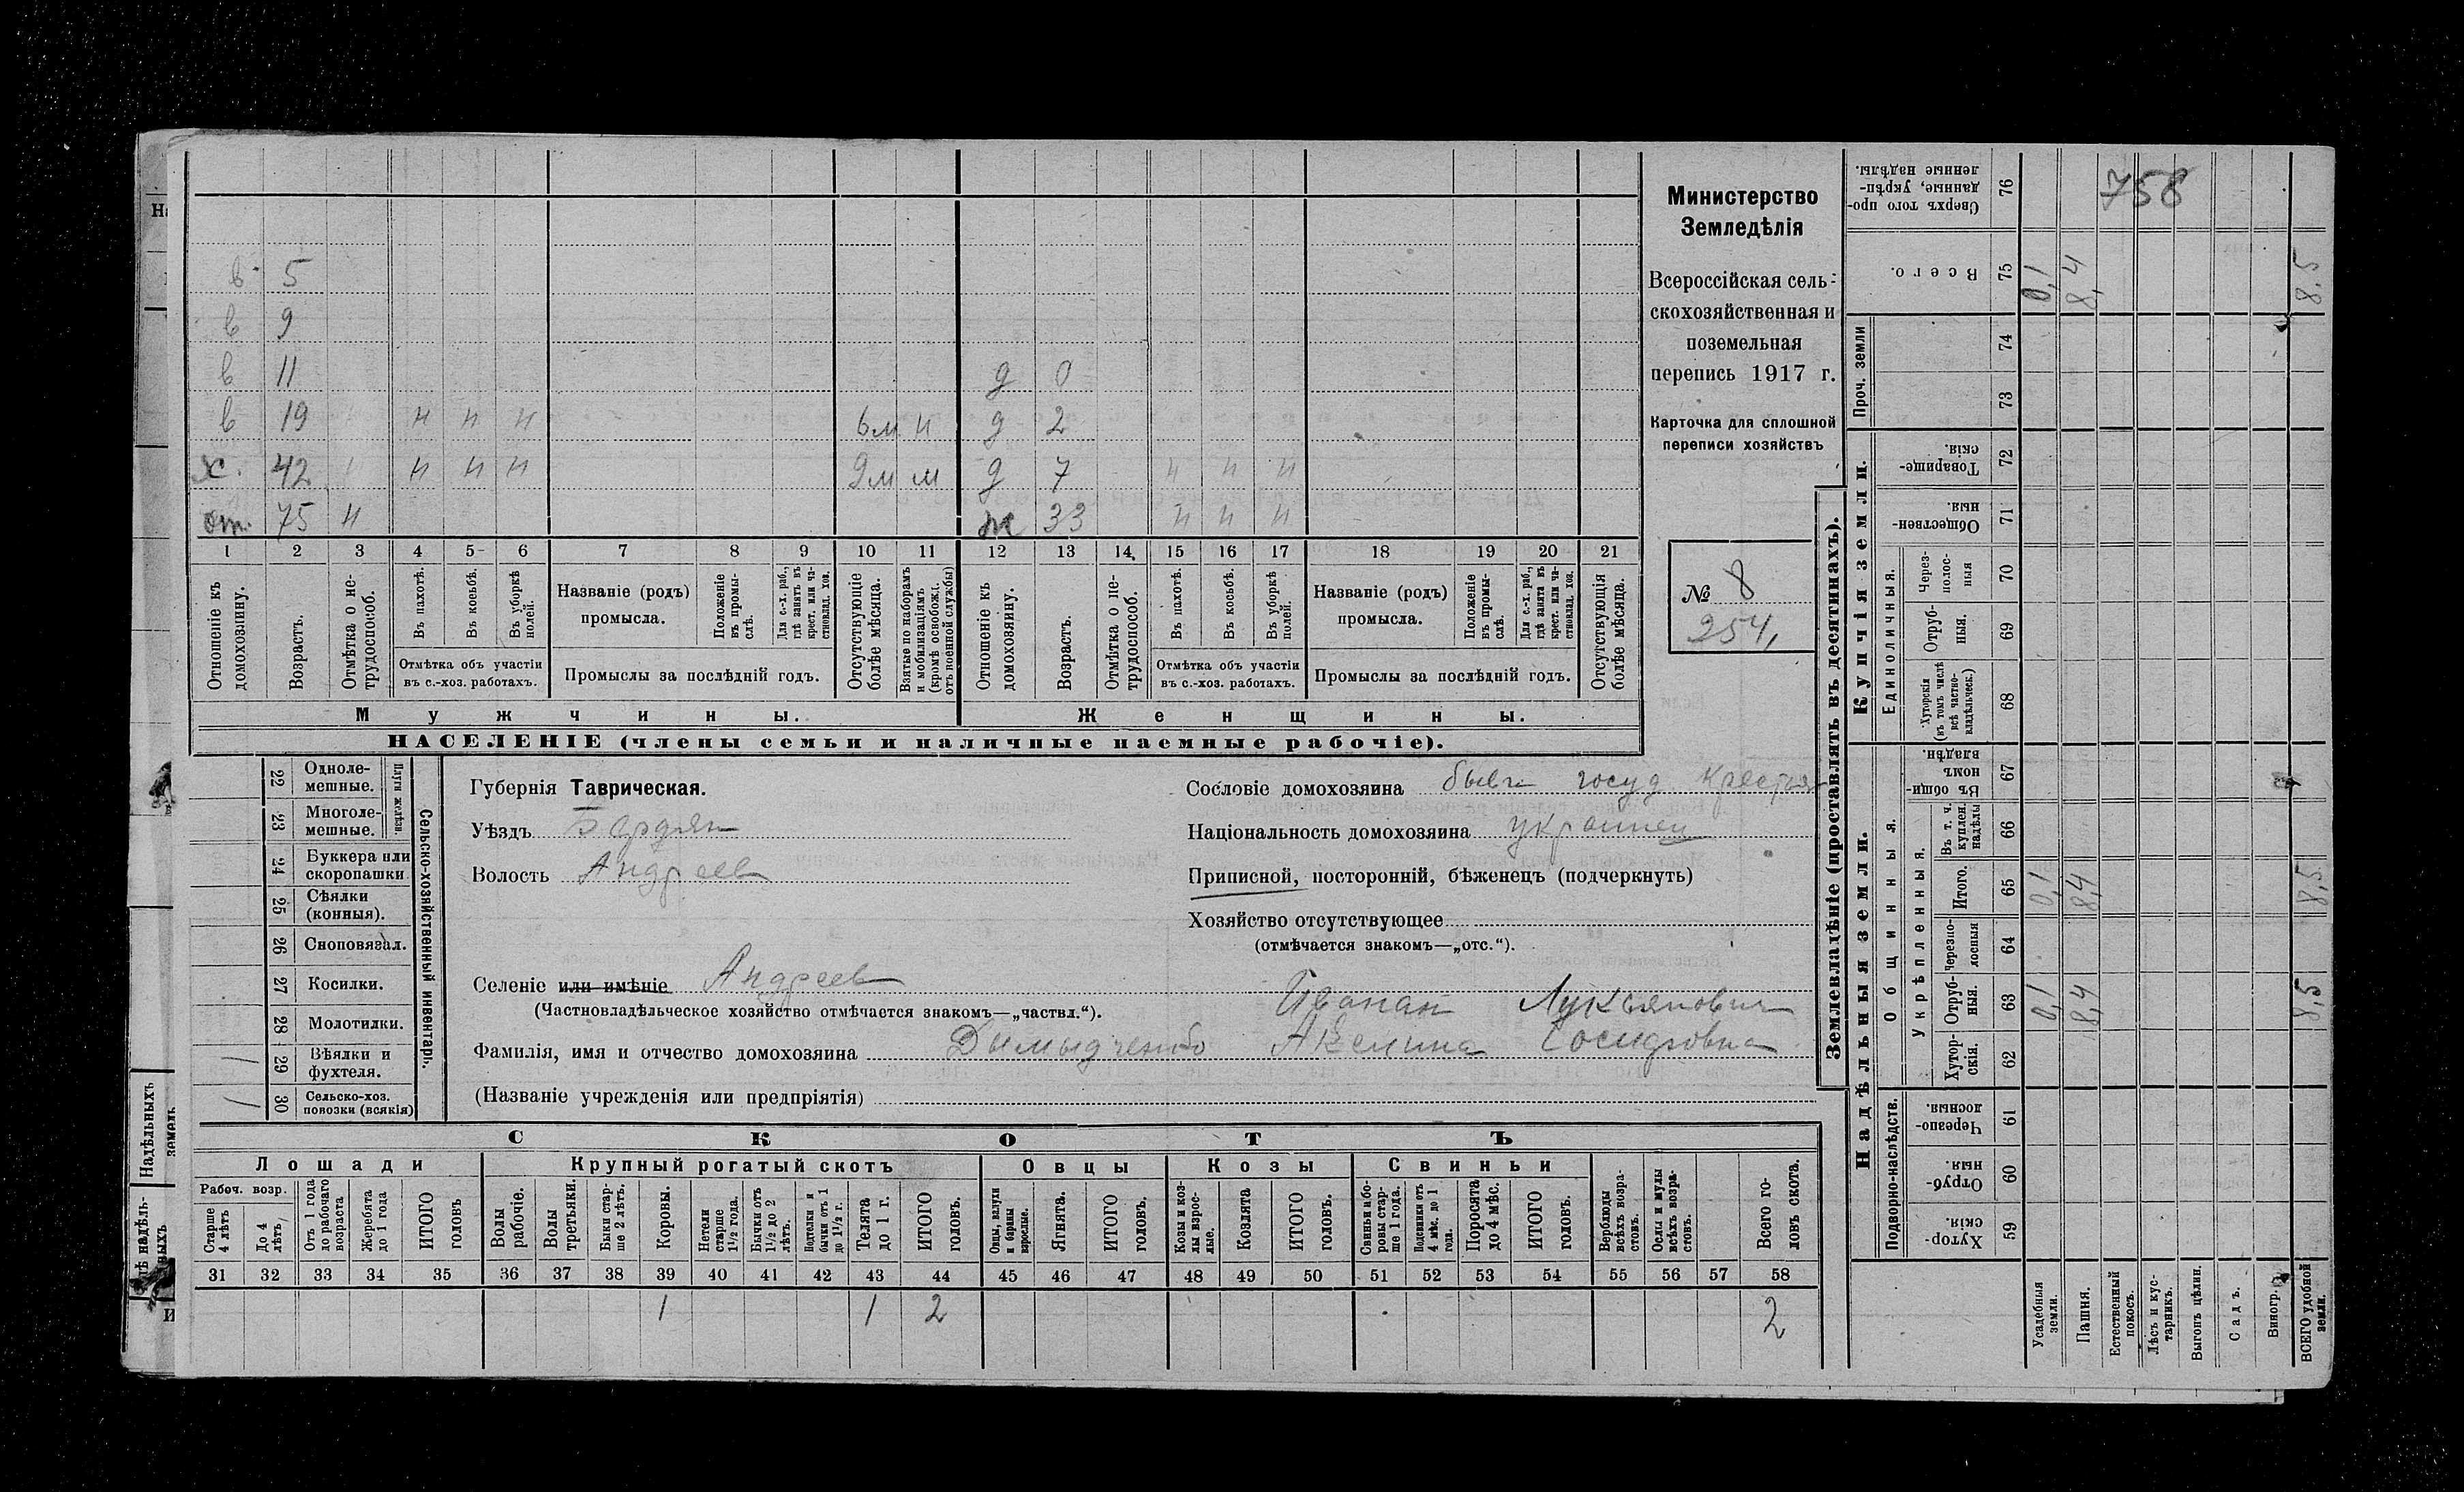 758
Министерство
Земледѣлія
Всероссійская сель-
скохозяйственная и
поземельная
перепись 1917 г.
Карточка для сплошной
переписи хозяйствъ
№ 8
254,
в 5
в 9
в 11 д 0
в 19 н н н 6м н д 2
х. 42 н н н 9м м д 7 н н н
от. 75 н ж 33 н н н
1 2 3 4 5 6 7 8 9 10 11 12 13 14 15 16 17 18 19 20 21
Отношеніе къ домохозяину.
Возрастъ.
Отмѣтка о не-трудоспособ.
Въ пахотѣ.
Въ косьбѣ.
Въ уборкѣ полей.
Отмѣтка объ участіи
въ с.-хоз. работахъ.
Названіе (родъ)
промысла.
Положеніе въ промы-слѣ.
Для с.-х. раб., гдѣ занятъ въ крест. или ча-стновлад. хоз.
Промыслы за послѣдній годъ.
Отсутствующіе болѣе мѣсяца.
Взятые по наборамъ и мобилизаціямъ (кромѣ освобожд. отъ военной службы)
Отношеніе къ домохозяину.
Возрастъ.
Отмѣтка о не-трудоспособ.
Въ пахотѣ.
Въ косьбѣ.
Въ уборкѣ полей.
Отмѣтка объ участіи
въ с.-хоз. работахъ.
Названіе (родъ)
промысла.
Положеніе въ промы-слѣ.
Для с.-х. раб., гдѣ занята въ крест. или ча-стновлад. хоз.
Промыслы за послѣдній годъ.
Отсутствующія болѣе мѣсяца.
Мужчины. Женщины.
НАСЕЛЕНІЕ (члены семьи и наличные наемные рабочіе).
Сельско-хозяйственный инвентарь.
Плуги желѣзн.
22 Одноле-мешные.
23 Многоле-мешные.
24 Буккера или скоропашки
25 Сѣялки (конныя).
26 Сноповязал.
27 Косилки.
28 Молотилки.
1 29 Вѣялки и фухтеля.
1 30 Сельско-хоз. повозки (всякія)
Губернія Таврическая.
Уѣздъ Бердян
Волость Андреев
Селеніе или имѣніе Андреев
(Частновладѣльческое хозяйство отмѣчается знакомъ—„частвл.“).
Сословіе домохозяина бывш госуд крестьян
Національность домохозяина украинец
Приписной, посторонній, бѣженецъ (подчеркнуть)
Хозяйство отсутствующее
(отмѣчается знакомъ—„отс.“).
Иванан Лукьянович
Фамилія, имя и отчество домохозяина Дымыдченко Акелина Сосидовна
(Названіе учрежденія или предпріятія)
СКОТЪ
Лошади Крупный рогатый скотъ Овцы Козы Свиньи
Рабоч. возр.
Старше 4 лѣтъ
До 4 лѣтъ
Отъ 1 года до рабочаго возраста
Жеребята до 1 года
ИТОГО головъ
Волы рабочіе.
Волы третьяки.
Быки стар-ше 2 лѣтъ.
Коровы.
Нетели старше 1½ года.
Бычки отъ 1½ до 2 лѣтъ.
Подтелки и бычки отъ 1 до 1½ г.
Телята до 1 г.
ИТОГО головъ.
Овцы, валухи и бараны взрослые.
Ягнята.
ИТОГО головъ.
Козы и коз-лы взрос-лые.
Козлята
ИТОГО головъ.
Свиньи и бо-ровы стар-ше 1 года.
Подсвинки отъ 4 мѣс. до 1 года.
Поросята до 4 мѣс.
ИТОГО головъ.
Верблюды всѣхъ возра-стовъ.
Ослы и мулы всѣхъ возра-стовъ.
Всего го-ловъ скота.
31 32 33 34 35 36 37 38 39 40 41 42 43 44 45 46 47 48 49 50 51 52 53 54 55 56 57 58
1 1 2 2
Землевладѣніе (проставлять въ десятинахъ).
Купчія земли.
Надѣльныя земли.
Проч. земли
Единоличныя.
Общинныя.
Укрѣпленныя.
Подворно-наслѣдств.
Сверхъ того про-данные, укрѣп-ленные надѣлы. 76
Всего. 75 0,1 8,4 8,5
74
73
Товарище-скія. 72
Обществен-ныя. 71
Через-полос-ныя 70
Отруб-ныя. 69
Хуторскія (въ томъ числѣ всѣ частно-владѣльческ.) 68
Въ общин-номъ владѣн. 67
Въ т. ч. куплен. надѣлы 66
Итого. 65 0,1 8,4 8,5
Черезпо-лосныя 64
Отруб-ныя. 63 0,1 8,4 8,5
Хутор-скія. 62
Черезпо-лосныя. 61
Отруб-ныя. 60
Хутор-скія. 59
Усадебныя земли.
Пашня.
Естественный покосъ.
Лѣсъ и кус-тарникъ.
Выгонъ цѣлин.
Садъ.
Виногр.
ВСЕГО удобной земли.
Надѣльныхъ
земель